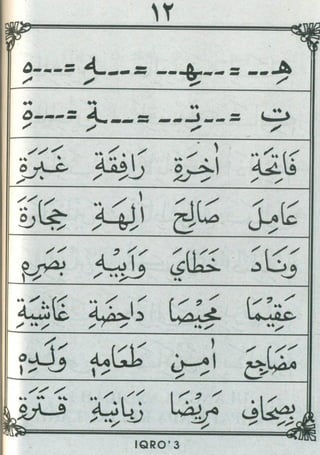 ١٢
هِـ--- = ---ـهِـ--- = ---ـهِ = ---ـهِ
تِ = ---تِـ--- = ---ـةِ = ---ةِ
فَاتِحَةِ اٰخِرَةِ رَافِقَةِ غَبَرَةِ
عَامِلَ صَالِحَ اٰلِهَةِ حِجَارَةَ
وَنَادَ خَطَايَ وَابِيْهِ بَصَرِهٖ
عَقِيْمَا مَحِيْصَا دَاحِضَةِ غَاشِيَةِ
مَضَاجِعَ اٰمِنِ طَعَامِهٖ وَلَدِهٖ
بِصِحَافِ مَرِيْضَا زَبَانِيَةَ قَتَرَةِ
IQRO'3